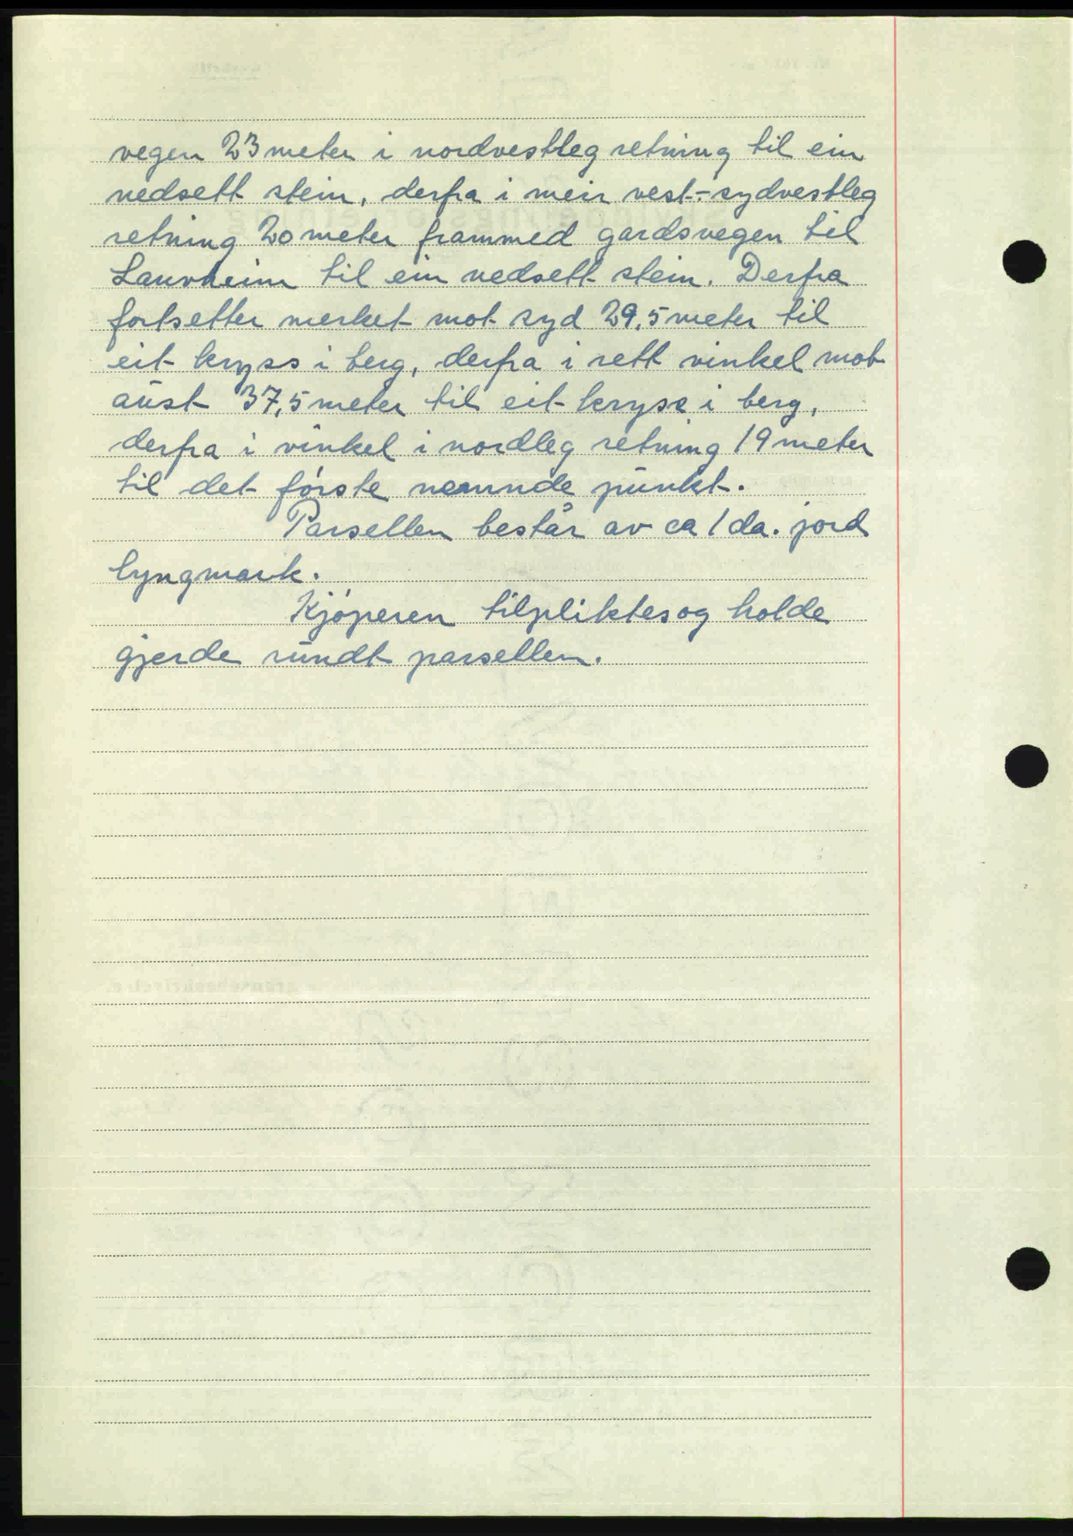 vegen 23 meter i nordvestleg retning til ein
nedsett stein, derfra i meir vest-sydvestleg
retning 20 meter frammed gardsvegen til
Lauvheim til ein nedsett stein. Derfra
fortsetter merket mot syd 29,5 meter til
eit kryss i berg, derfra i rett vinkel mot
aust 37,5 meter til eit kryss i berg,
derfra i vinkel i nordleg retning 19 meter
til det første nemnde punkt.
Parsellen består av ca 1 da. jord
lyngmark.
Kjøperen tilpliktes og holde
gjerde rundt parsellen.